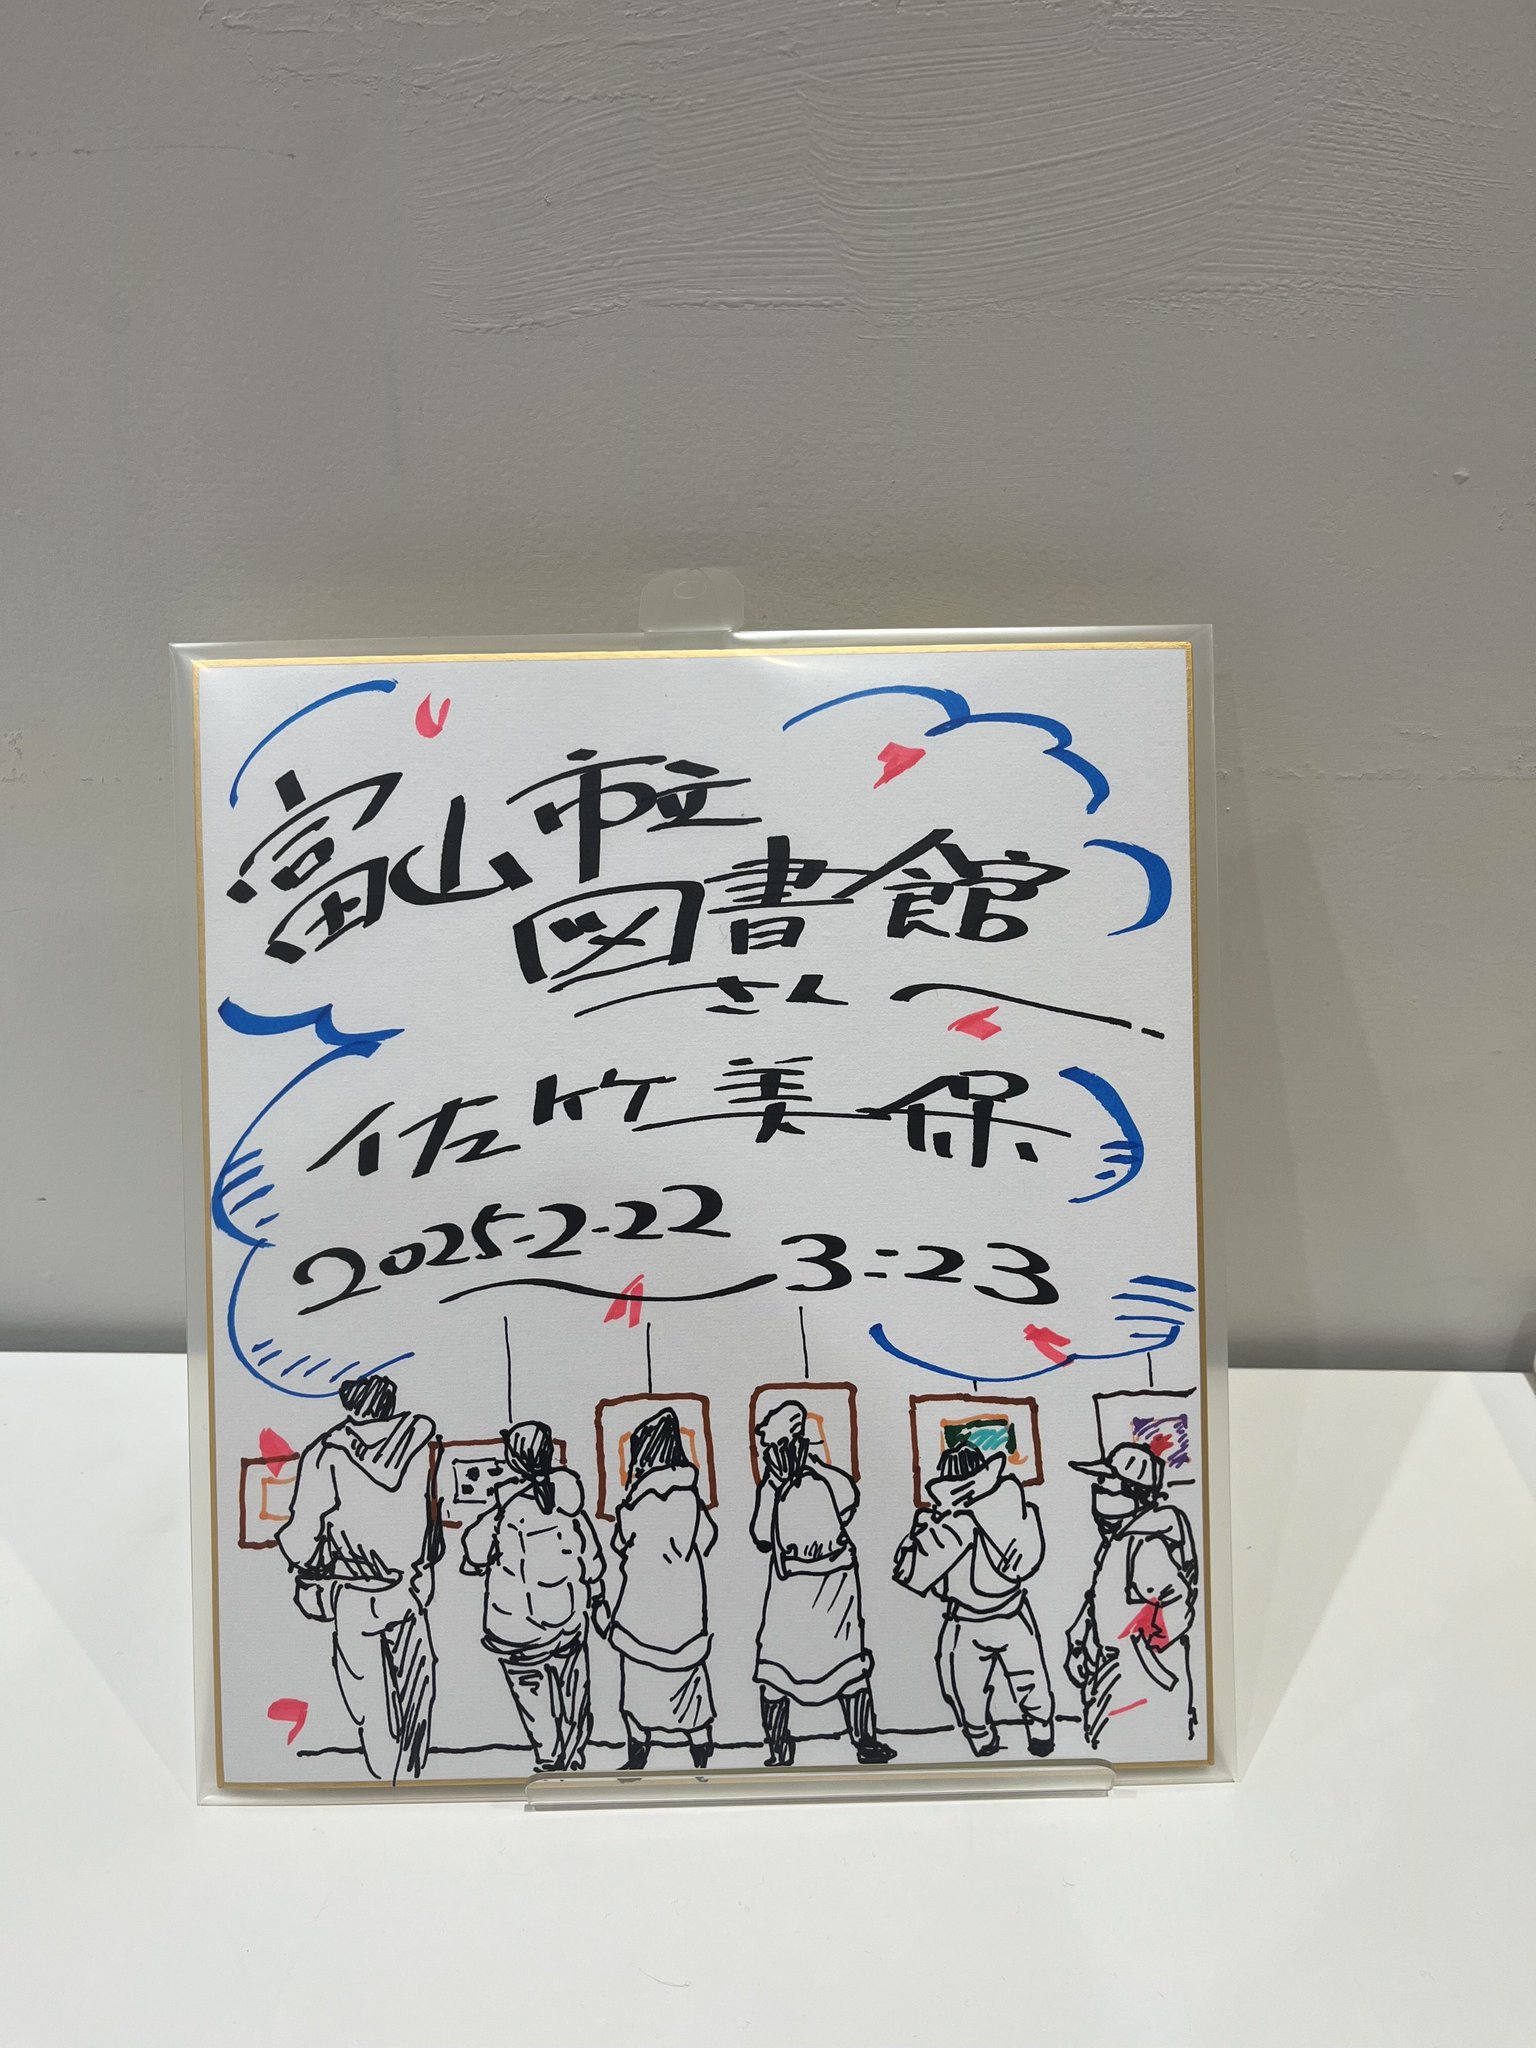 富山市立
図書館
さんへ
佐竹美保
2025-2-22
3:23